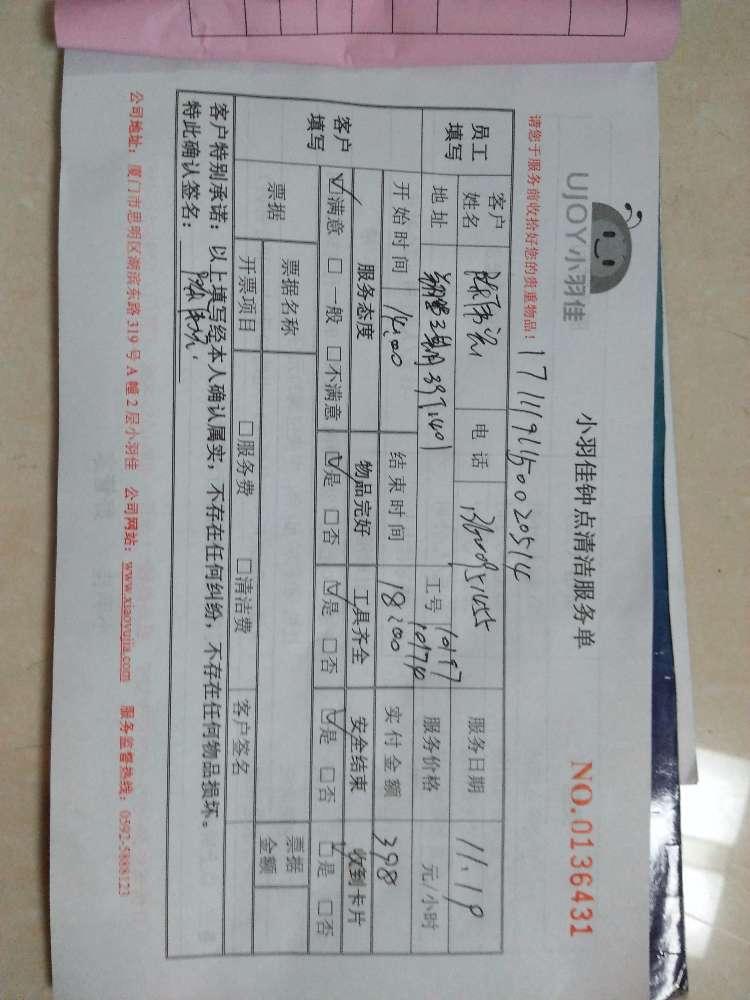 UJOY小羽佳
小羽佳钟点清洁服务单
NO.0136431
请您于服务前收拾好您的贵重物品！
1711191150020514
员工填写 客户姓名 电话 服务日期 11.19
地址 工号 10197 10174 服务价格 元/小时
开始时间 14:00 结束时间 18:00 实付金额 398
客户填写 服务态度 物品完好 工具齐全 安全结束 收到卡片
☑满意 □一般 □不满意 ☑是 □否 ☑是 □否 ☑是 □否 ☑是 □否
票据 票据名称 票据金额
开票项目 □服务费 □清洁费 客户签名
客户特别承诺：以上填写经本人确认属实，不存在任何纠纷，不存在任何物品损坏。
特此确认签名：
公司地址：厦门市思明区湖滨东路 319 号 A 幢 2 层小羽佳 公司网站：www.xiaoyujia.com 服务监督热线：0592-5888123